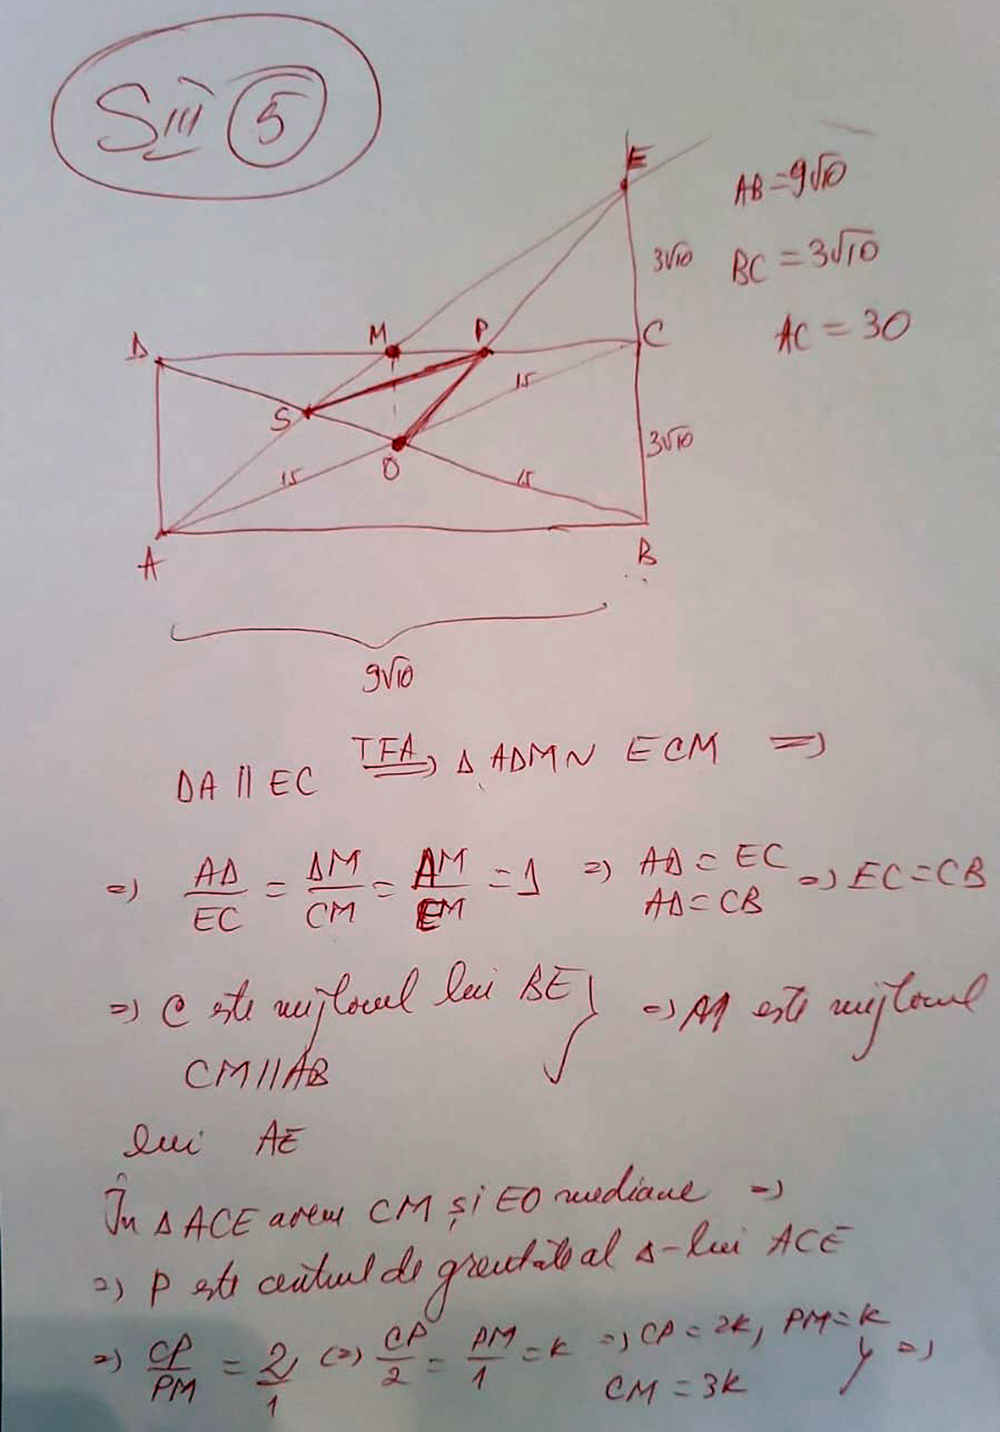 SIII 5
E
AB=9√10
3√10
BC=3√10
M P
D C
AC=30
15
S
3√10
O
15 15
A B
9√10
DA||EC =TFA=> Δ ADM ~ ECM =>
=> AD/EC = DM/CM = AM/EM = 1 => AD=EC AD=CB => EC=CB
=> C este mijlocul lui BE } => M este mijlocul
CM||AB
lui AE
În Δ ACE avem CM și EO mediane =>
=> P este centrul de greutate al Δ-lui ACE
=> CP/PM = 2/1 <=> CP/2 = PM/1 = k => CP=2k, PM=k } =>
CM=3k